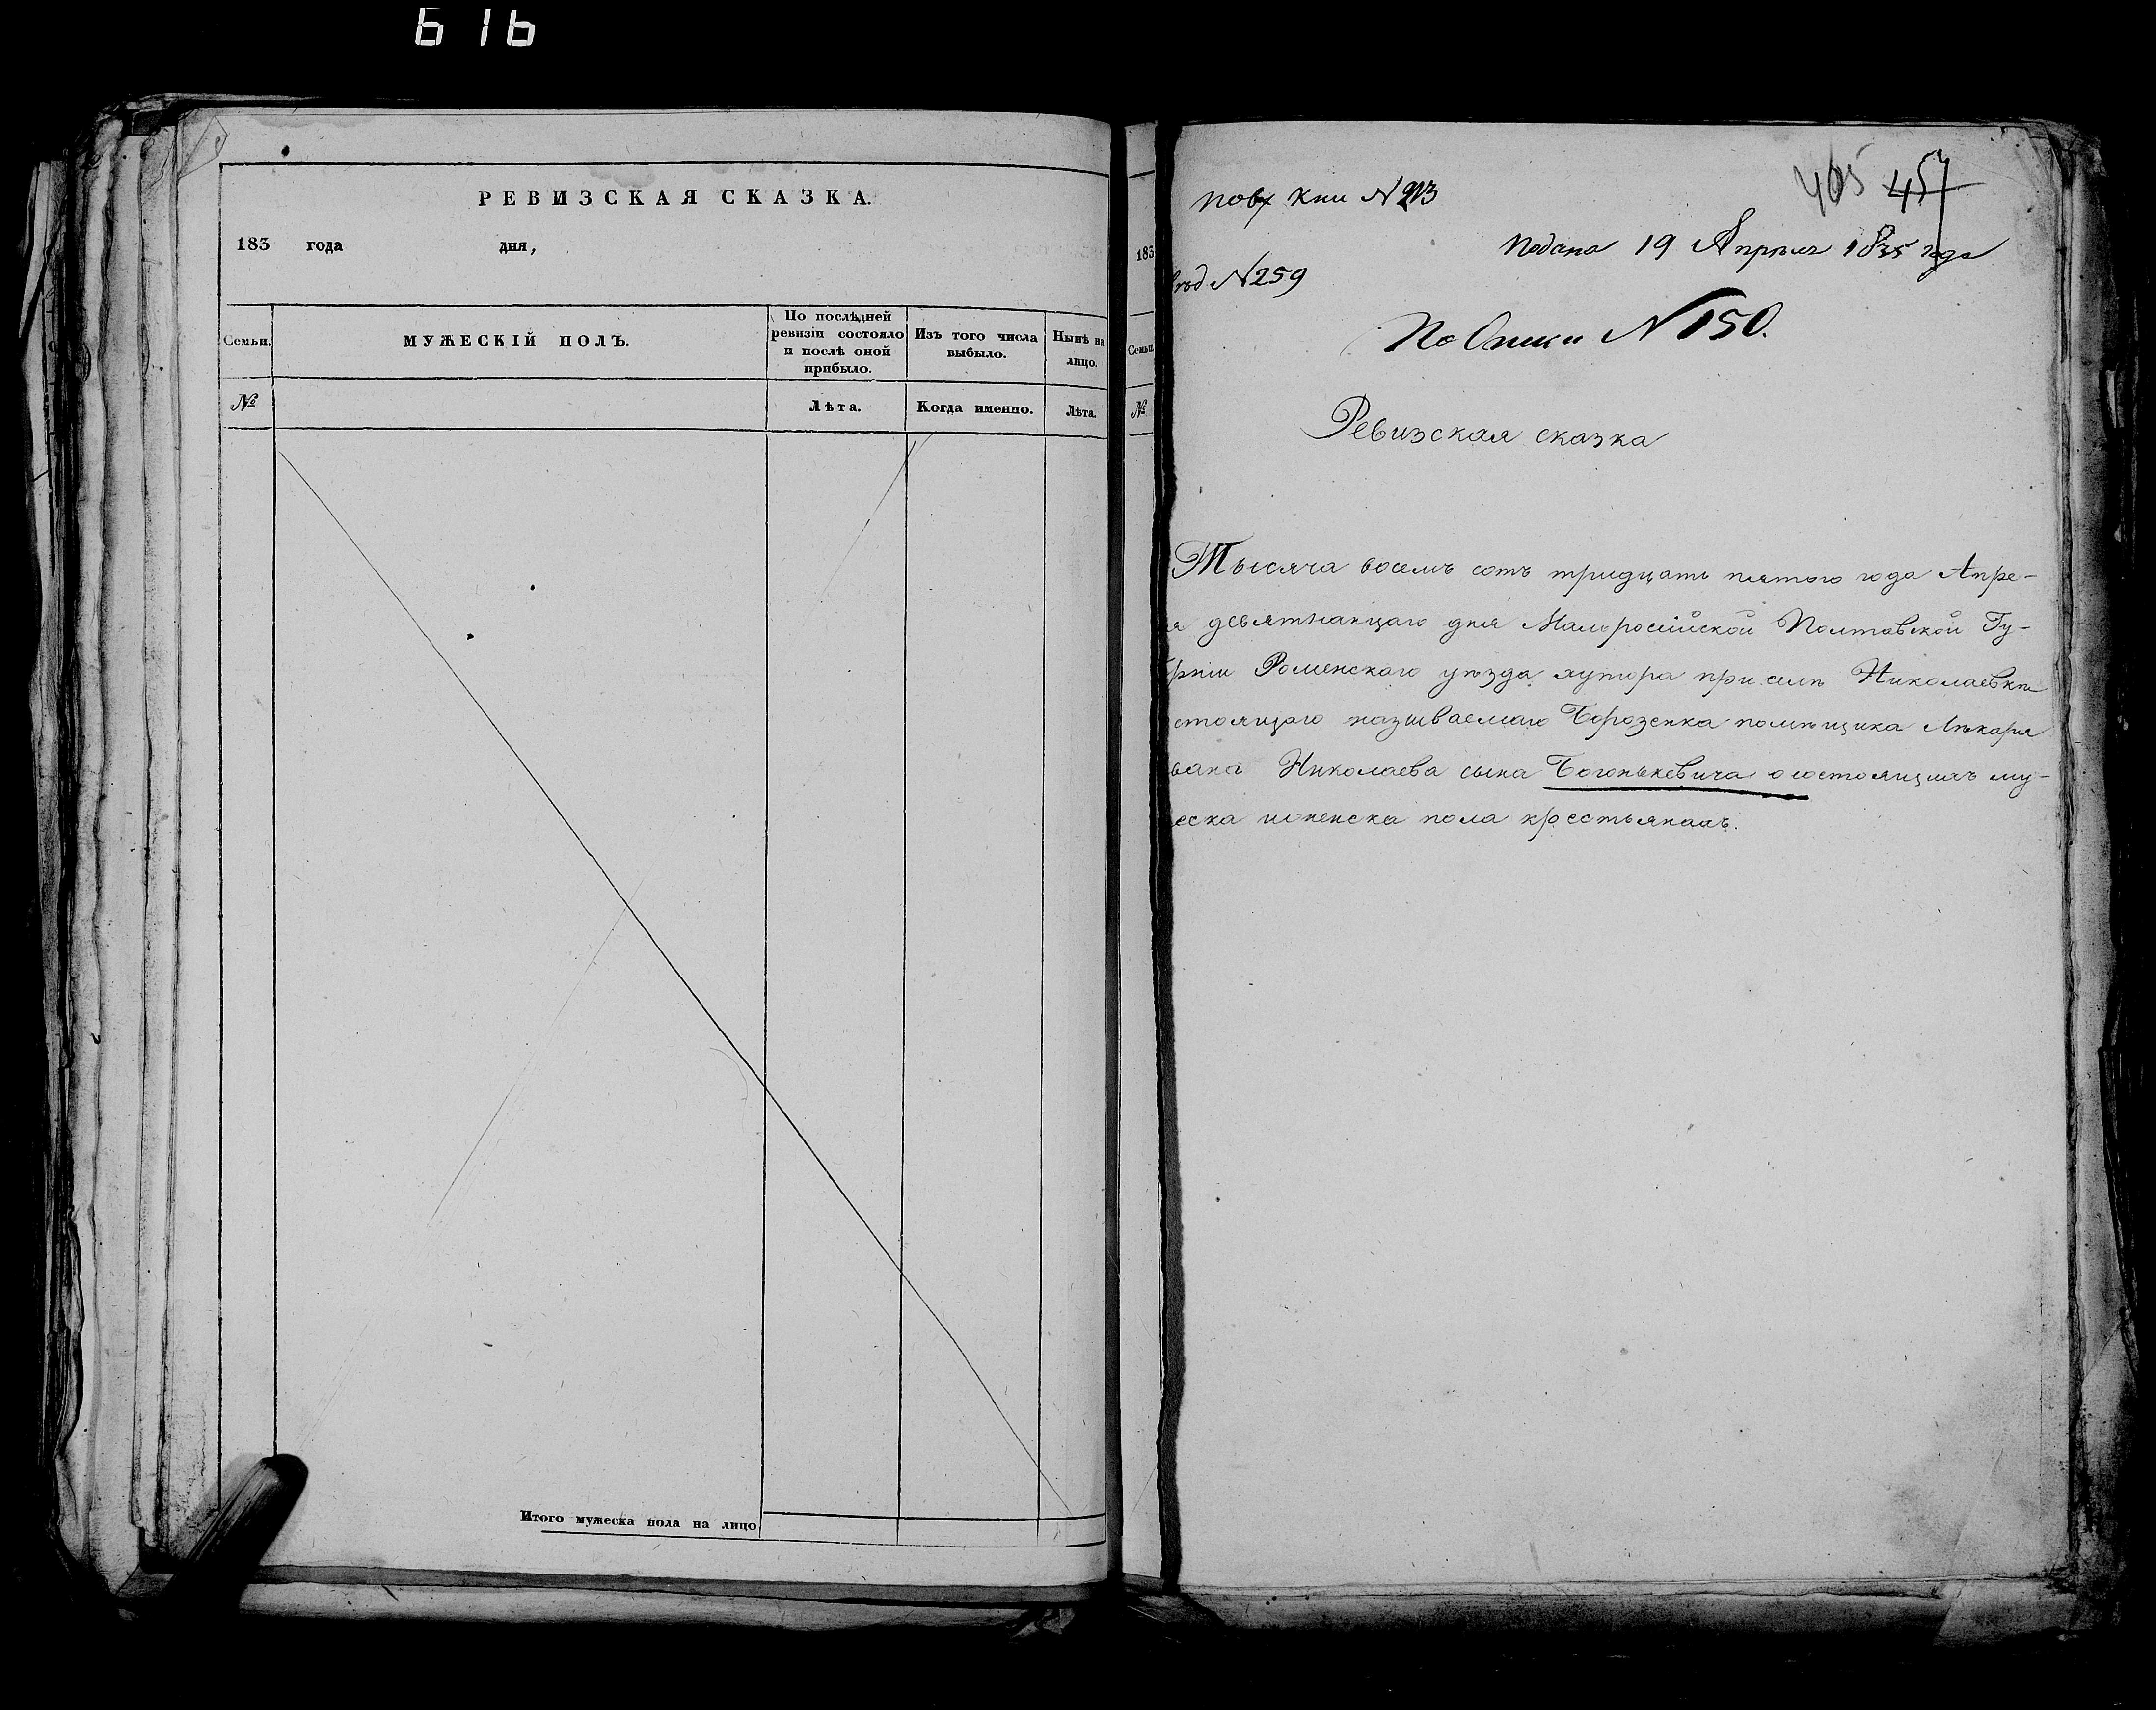 616
РЕВИЗСКАЯ СКАЗКА.
183 года дня,
Семьи.
МУЖЕСКІЙ ПОЛЪ.
По послѣдней
ревизіи состояло
и послѣ оной
прибыло.
Изъ того числа
выбыло.
Нынѣ на
лицо.
№
Лѣта.
Когда именно.
Лѣта.
Итого мужеска пола на лицо
183
Семьи.
№
405 457
по вх Кни N 213
Подана 19 Апрѣля 1835 года
N 259
По Описи N 150.
Ревизская сказка
Тысяча восемь сотъ тридцать пятого года Апре-
я девятнатцаго дня Малоросійской Полтавской Гу-
рніи Роменскаго уѣзда хутора при селѣ Николаевки
стоящаго называемаго Борозенка помѣщика Лѣкаря
вана Николаева сына Богонькевича о состоящихъ му-
еска и женска пола крестьянахъ.